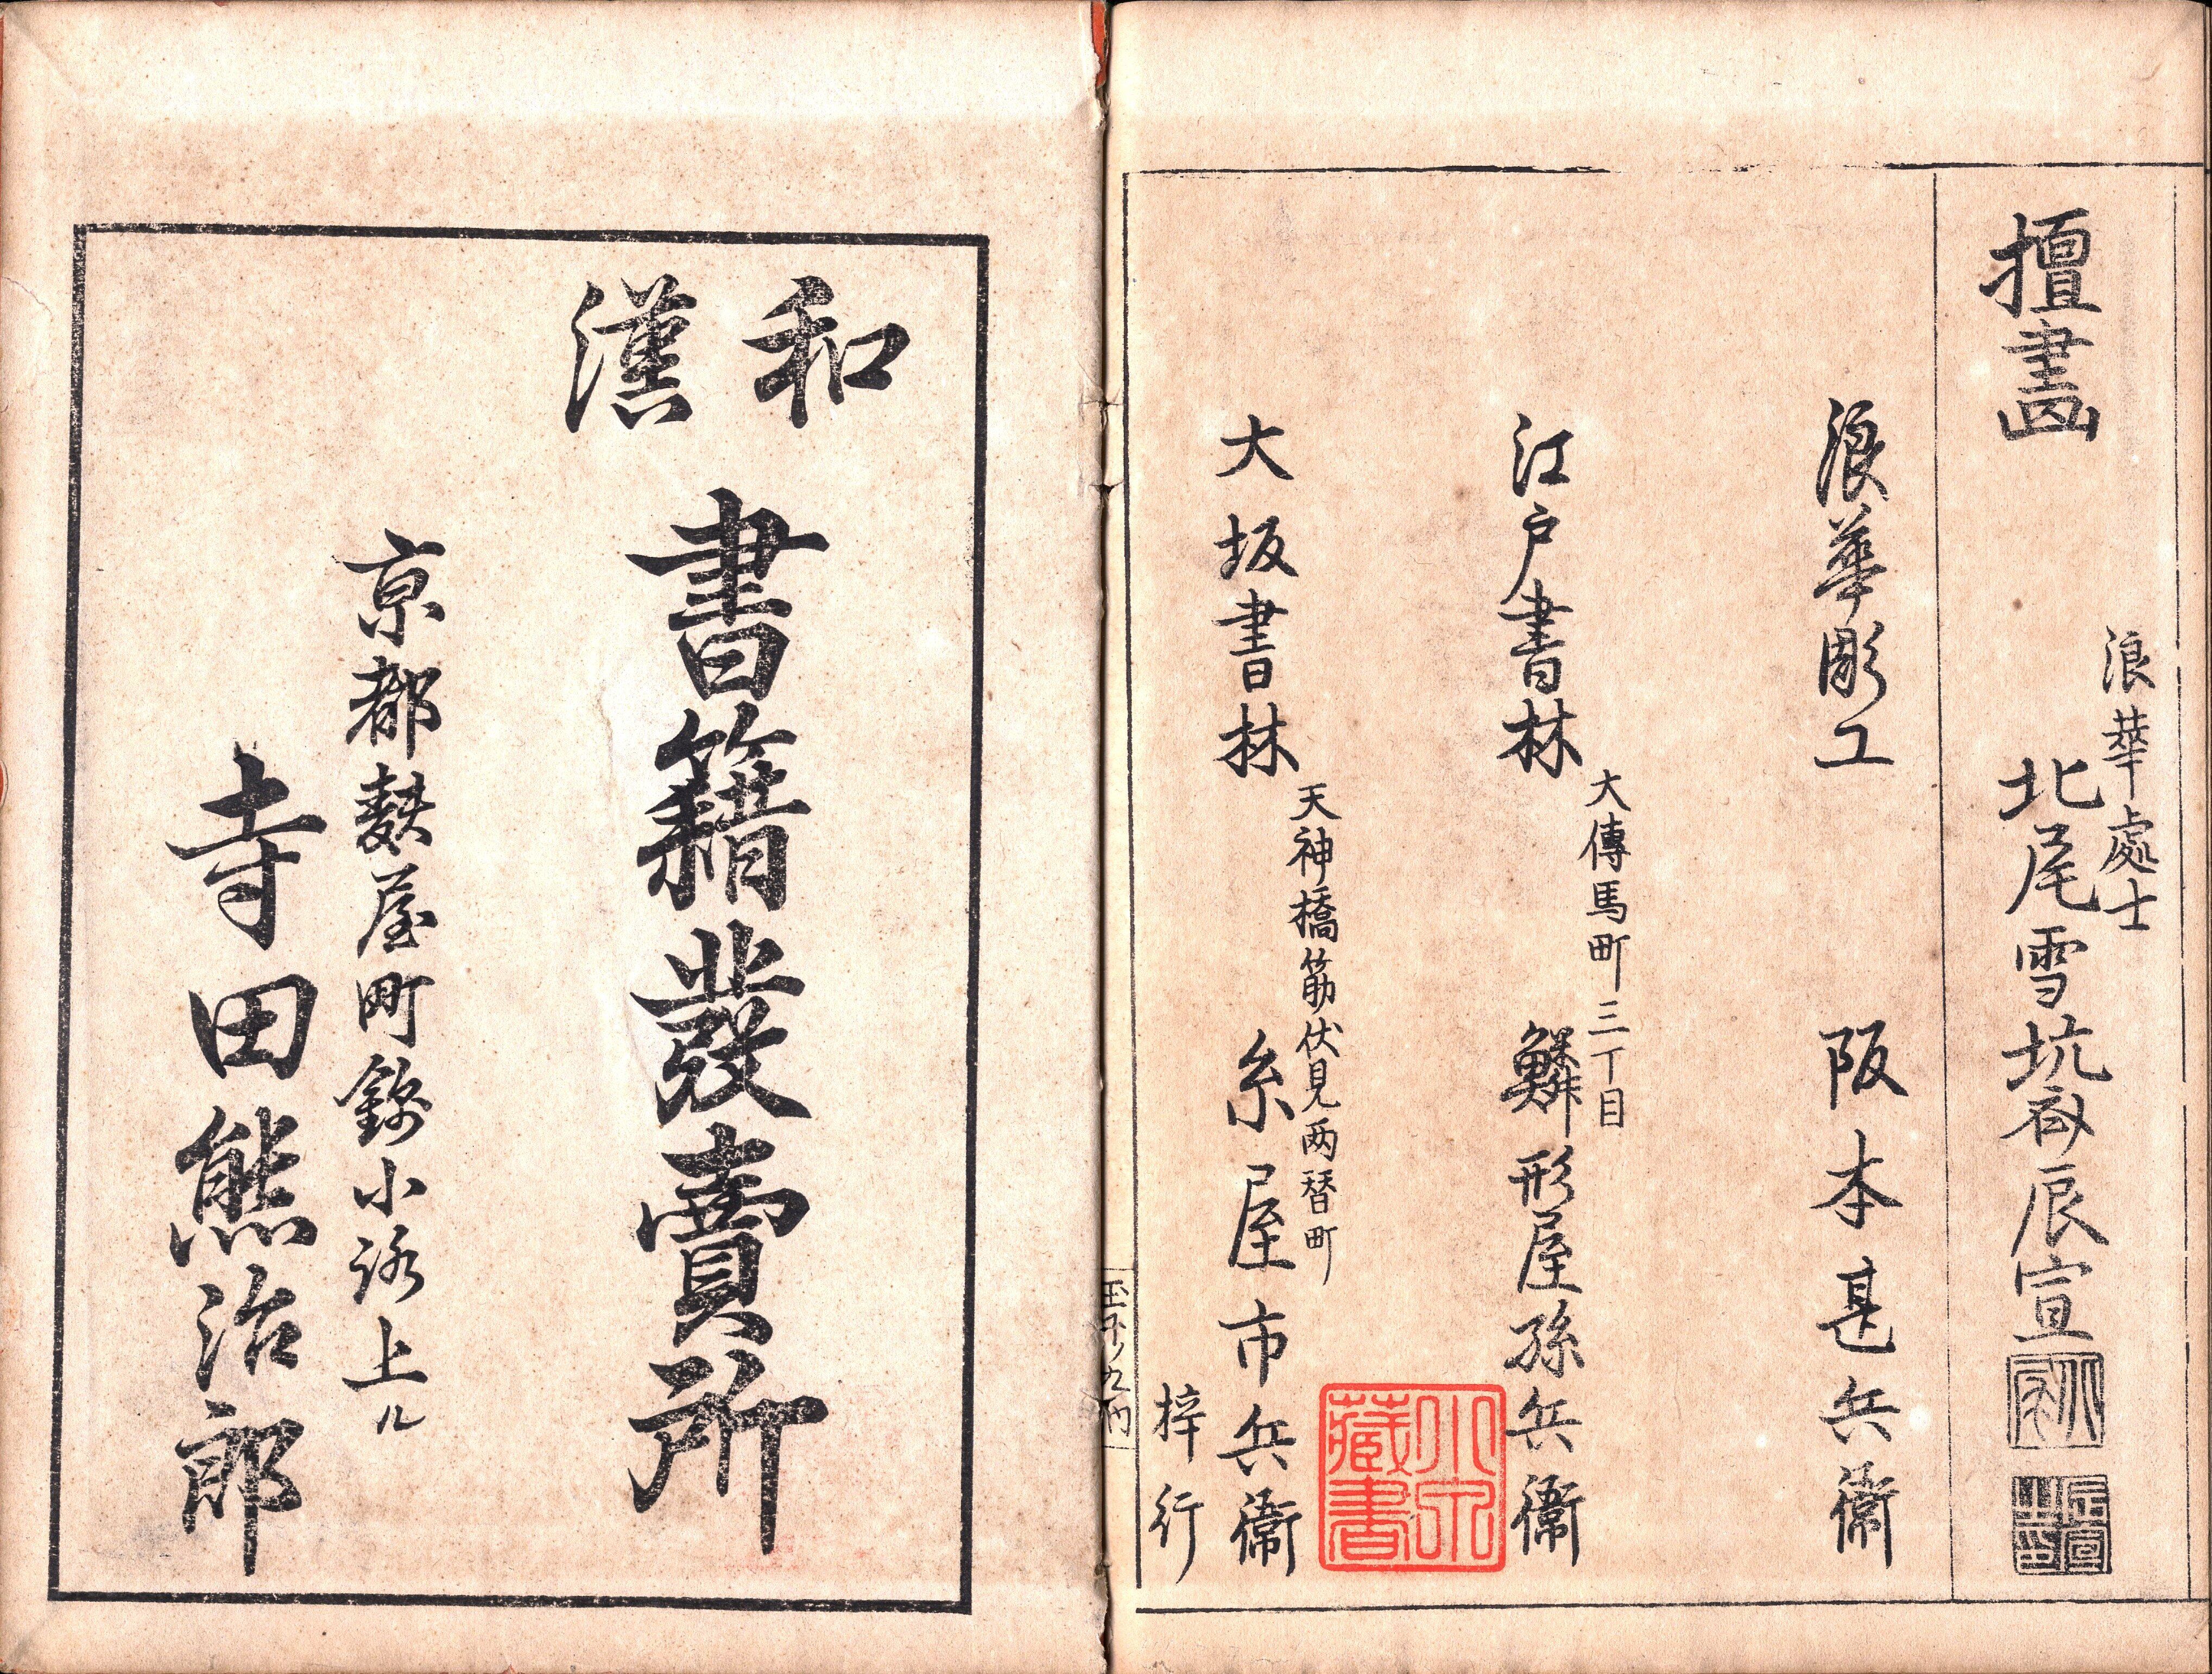 擅畵
浪華處士
北尾雪坑齋辰宣
浪華彫工 阪本甚兵衛
大傳馬町三丁目
江戸書林 鱗形屋孫兵衛
天神橋筋伏見両替町
大坂書林 糸屋市兵衛
梓行
小汀
藏書
和漢
書籍發賣所
京都麩屋町錦小路上ル
寺田熊治郎